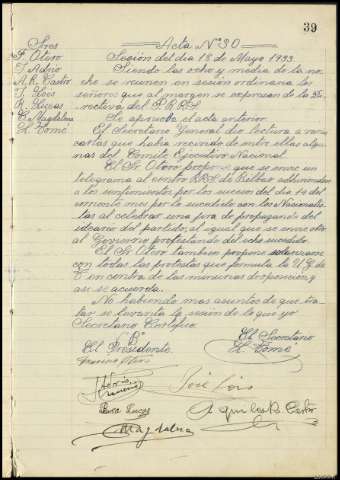 39
Sres
F. Otero
J. Adrio
A. R. Castro
J. Lois
R. Lucas
Magdalena
H. Tomé
Acta Nº 30
Sesión del dia 18 de Mayo 1933
Siendo las ocho y media de la no-
che se reunen en sesión ordinaria los
señores que al margen se expresan de la Di-
rectiva del P.R.R.S.
Se aprueba el acta anterior
El Secretario General dio lectura a varias
cartas que habia recivido de entre ellas algu-
nas del Comite Ejecutivo Nacional
El Sr. Otero propone que se envie un
telegrama al centro de Bilbao adhiriendonos
a los sentimientos por los sucesos del dia 14 del
corriente mes por lo sucedido con los Nacionalis-
tas al celebrar una gira de propaganda del
ideario del partido, al igual que se envie otro
al Govierno protestando del echo sucedido
El Sr. Otero tambien propone
con todas las protestas que formula la U.G. de
T. en contra de las minorias de oposición y
asi se acuerda.
No habiendo mas asuntos de que tra-
tar se levanta la sesión de lo que yo
Secretario Certifico
Vº Bº
El Presidente
El Secretario
H. Tomé
José Lois
Lucas
Castro
Magdalena